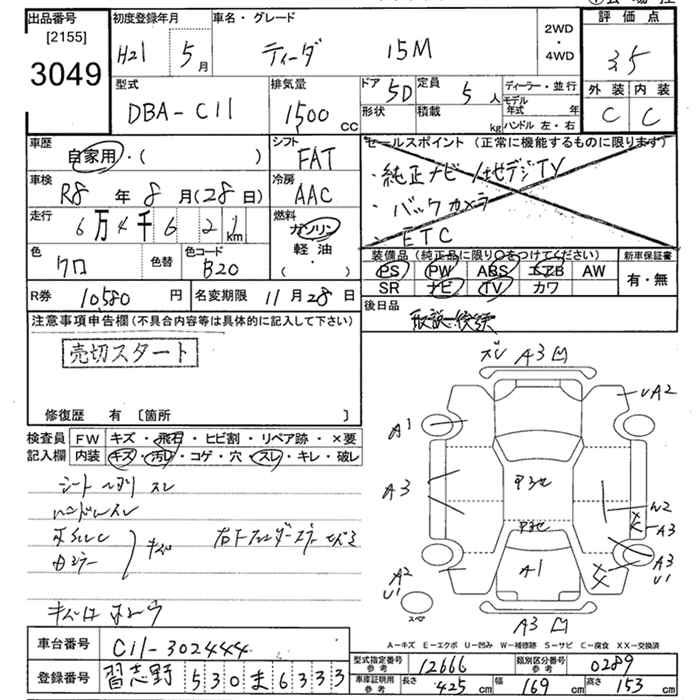 出品番号 初度登録年月 車名・グレード 2WD・4WD 評価点
[2155]
3049 H21 5月 ティーダ 15M 3.5
型式 排気量 ドア 5D 定員 5人 ディーラー・並行 外装 内装
DBA-C11 1500cc 形状 積載 kg モデル年式 年 C C
ハンドル 左・右
車歴 自家用・( ) シフト FAT セールスポイント(正常に機能するものに限ります)
車検 R8年8月(28日) 冷房 AAC ・純正ナビ/地デジTV
走行 6万4千6 2 1km 燃料 ガソリン・軽油・( ) ・バックカメラ
・ETC
色 クロ 色替 色コード B20 装備品(純正品に限り○をつけてください) 新車保証書
PS PW ABS エアB AW 有・無
SR ナビ TV カワ
R券 10580円 名変期限 11月28日 後日品
注意事項申告欄(不具合内容等は具体的に記入して下さい) 取説
売切スタート
修復歴 有 [箇所 ]
検査員記入欄 FW キズ・飛石・ヒビ割・リペア跡・×要
内装 キズ・汚れ・コゲ・穴・スレ・キレ・破レ
シート
ハンドルスレ
キズ
ズレ A3
UA2
A1
A3
甲34セ
W2
A3
A1
A3
U1
A2
U1
スペア
A3
A-キズ E-エクボ U-凹み W-補修跡 S-サビ C-腐食 XX-交換済
車台番号 C11-302444
登録番号 習志野 530ま6333
型式指定番号 参考 12666 類別区分番号 参考 0289
車庫証明用 参考 長さ 425cm 幅 169cm 高さ 153cm